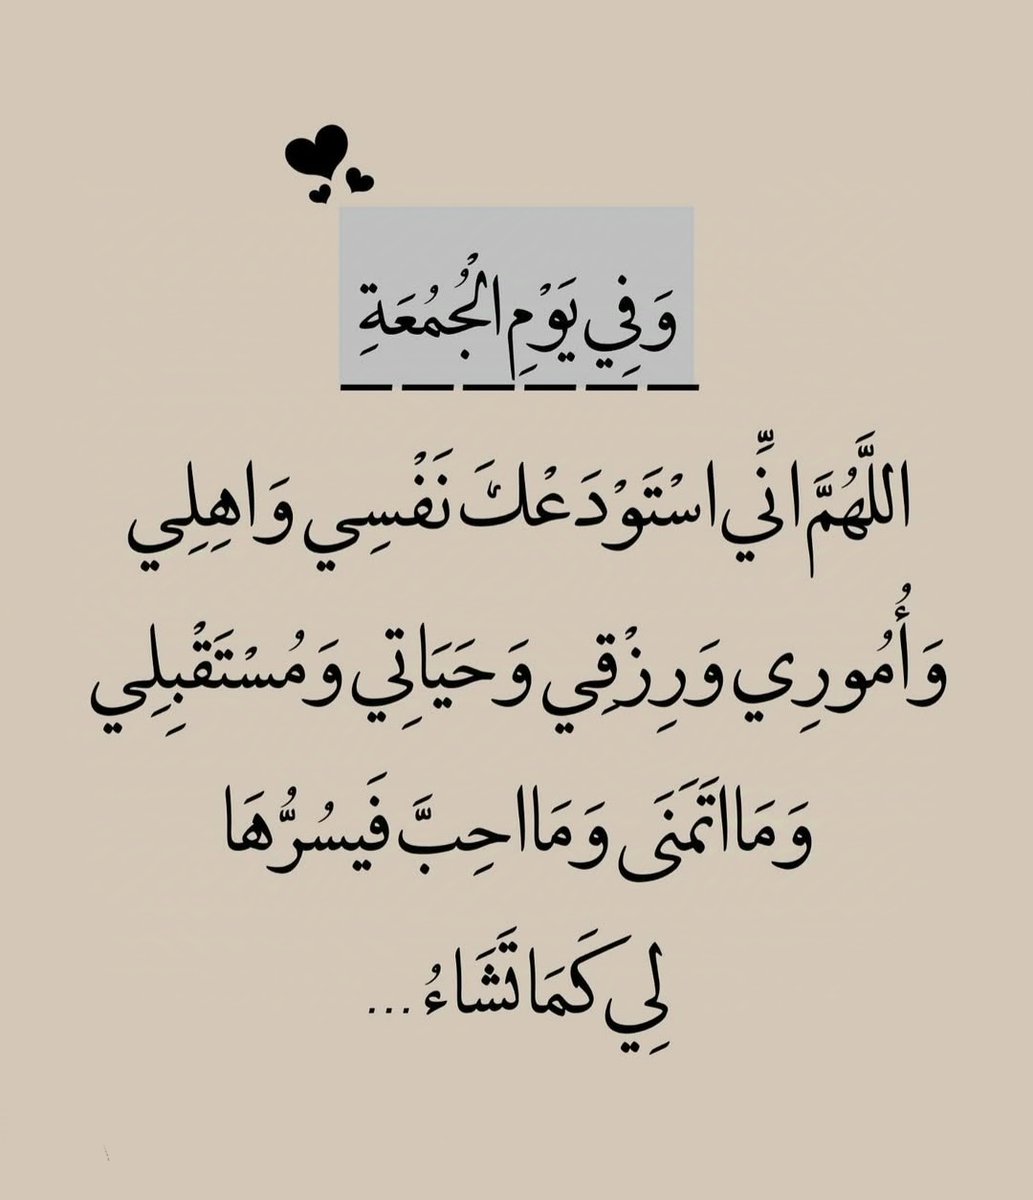 وَفِي يَوْمِ الْجُمُعَةِ
اللَّهُمَّ انِّي اسْتَوْدَعْكَ نَفْسِي وَاهِلِي
وَأُمُورِي وَرِزْقِي وَحَيَاتِي وَمُسْتَقْبِلِي
وَمَا اتَمَنَى وَمَا احِبَّ فَيسُرُّهَا
لِي كَمَا تَشَاءُ ...